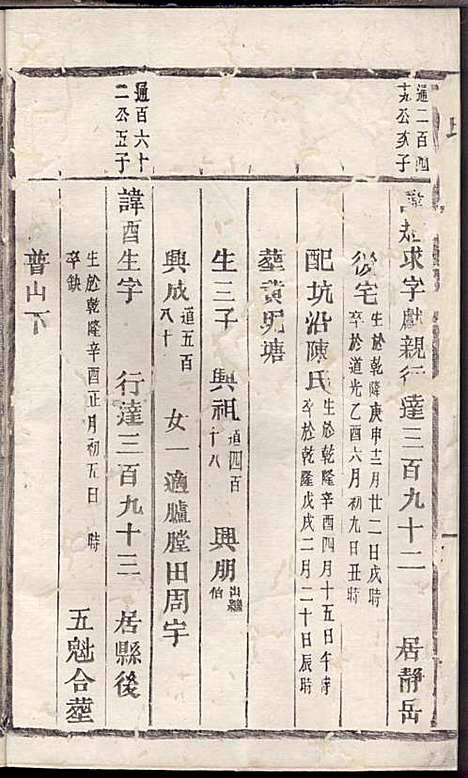 通二百四
十公亥子
求字獻親行達三百九十二 居靜岳
從宅 生於乾隆庚申十二月廿二日戌時
卒於道光乙酉六月初九日丑時
配坑沿陳氏 生於乾隆辛酉四月十五日午時
卒於乾隆戊戌二月二十日辰時
塟黃塘
生三子 興祖 道四百十八 興朋 出繼伯
興成 道五百八十 女一適臚膛田周宇
通百六十
二公五子
諱酉生字 行達三百九十三 居縣後
生於乾隆辛酉正月初五日 時
卒缺 五魁合塟
普山下